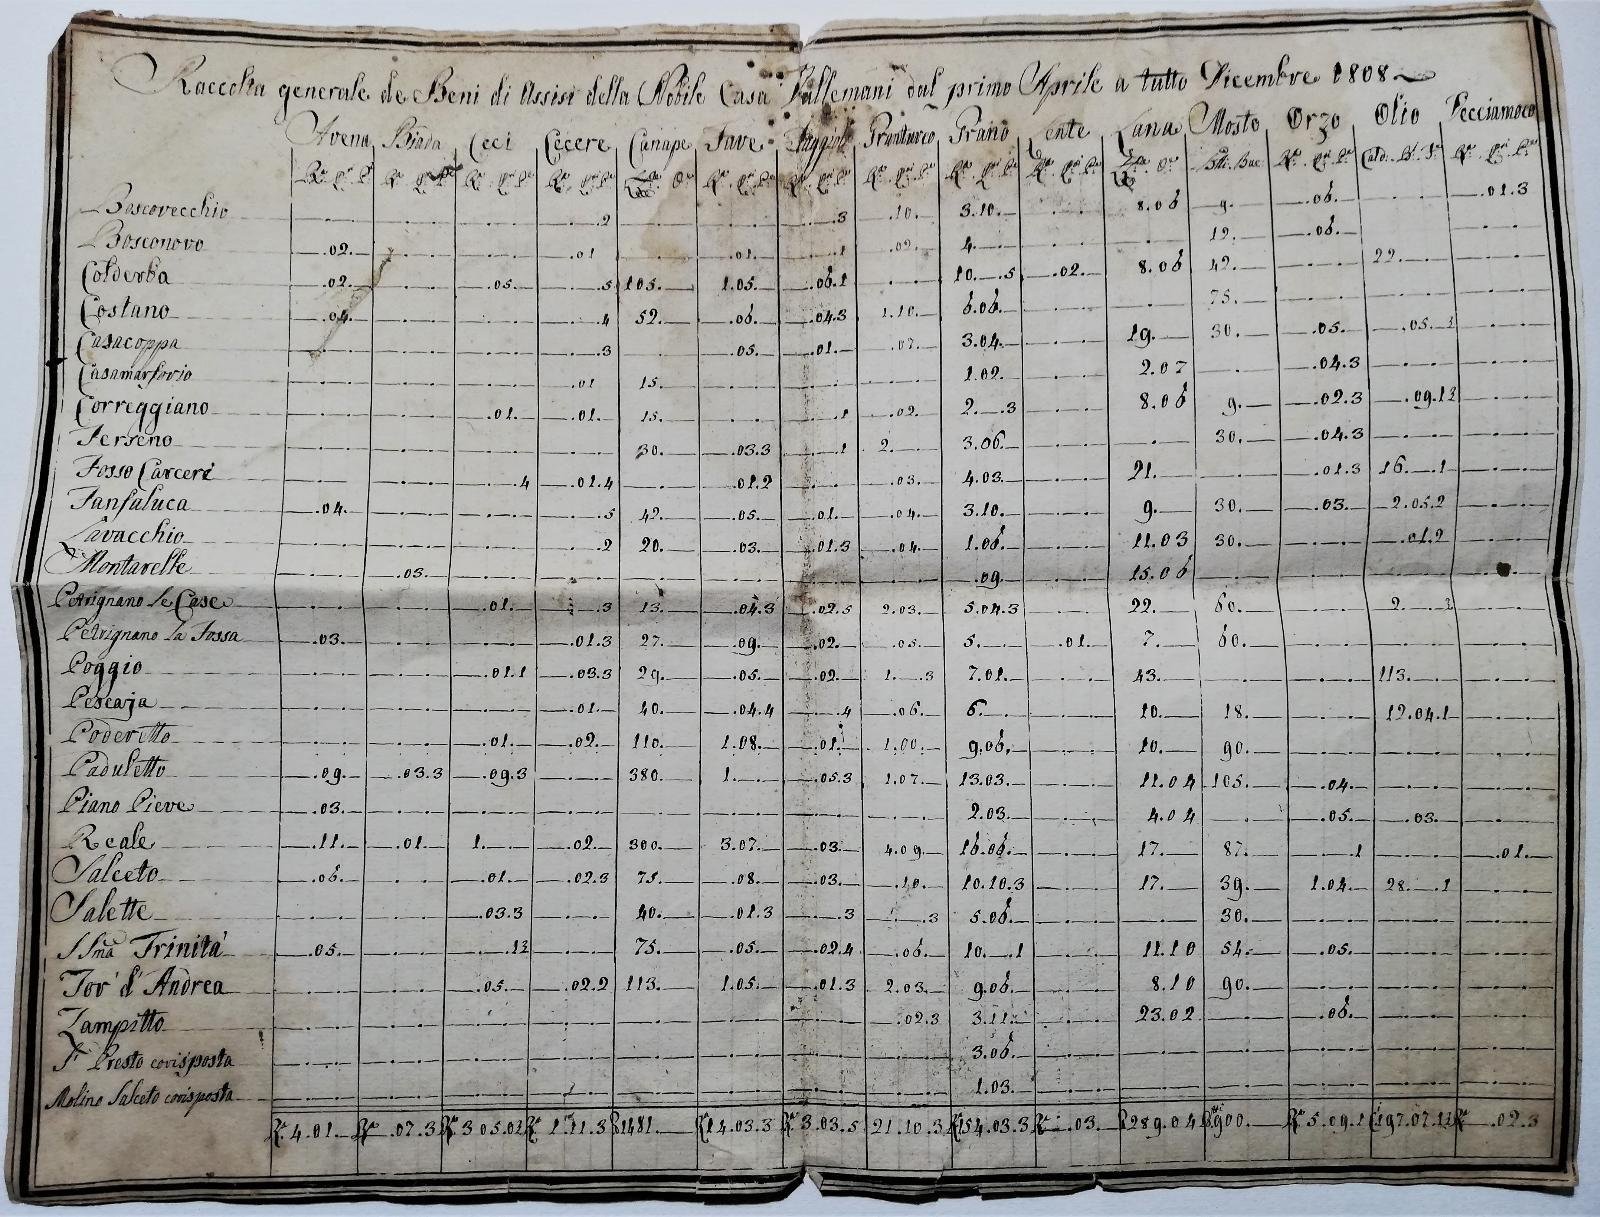 Raccolta generale de Beni di Assisi della Nobile Casa Vallemani dal primo Aprile a tutto Dicembre 1808
Avena Biada Ceci Cecere Canape Fave Faggioli Granturco Grano Lente Lana Mosto Orzo Olio Vecciamoco
Boscovecchio .2 .3 .10. 3.10. 8.06 9. .06. .01.3
Bosconovo .02. .01 .01. .1 .02. 4. 12. .06.
Colderba .02. .05. .5 105. 1.05. .06.1 10. .5 .02. 8.06 42. 22.
Costano .04. .4 52. .06. .04.3 1.10. 6.06. 75.
Casacoppa .3 .05. .01. .07. 3.04. 19. 30. .05. .05.
Casamarforio .01 15. 1.02. 2.07 .04.3
Correggiano .01. .01. 15. .1 .02. 2. .3 8.06 9. .02.3 .09.13
Ferseno 30. .03.3 .1 2. 3.06. 30. .04.3
Fosso Carceri .4 .01.4 .01.2 .03. 4.03. 21. .01.3 16. .1
Fanfaluca .04. .5 42. .05. .01. .04. 3.10. 9. 30. .03. 2.05.2
Lavacchio .2 20. .03. .01.3 .04. 1.06. 11.03 30. .01.2
Montarelle .03. .09. 15.06
Petrignano le Case .01. .3 13. .04.3 .02.5 2.03. 5.04.3 22. 60. 2.
Petrignano la Fossa .03. .01.3 27. .09. .02. .05. 5. .01. 7. 60.
Poggio .01.1 .03.3 29. .05. .02. 1. .3 7.01. 43. 113.
Pescaja .01. 40. .04.4 .4 .06. 6. 10. 18. 12.04.1
Poderetto .01. .02. 110. 1.08. .01. 1.00. 9.06. 10. 90.
Paduletto .09. .03.3 .09.3 380. 1. .05.3 1.07. 13.03. 11.04 105. .04.
Piano Pieve .03. 2.03. 4.04 .05. .03.
Reale .11. .01. 1. .02. 300. 3.07. .03. 4.09. 16.06. 17. 87. .1 .01.
Salceto .06. .01. .02.3 75. .08. .03. .10. 10.10.3 17. 39. 1.04. 28. .1
Salette .03.3 40. .01.3 .3 .3 5.06. 30.
SSma Trinita' .05. .12 75. .05. .02.4 .06. 10. .1 11.10 54. .05.
Tor' d' Andrea .05. .02.2 113. 1.05. .01.3 2.03. 9.06. 8.10 90.
Zampitto .02.3 3.11. 23.02 .06.
F Presto corisposta 3.06.
Molino Salceto corisposta 1.03.
4.01. .07.3 3 05.02 1.11.3 1481. 14.03.3 3.03.5 21.10.3 154.03.3 .03. 289.04 900. 5.09.1 197.07.11 .02.3